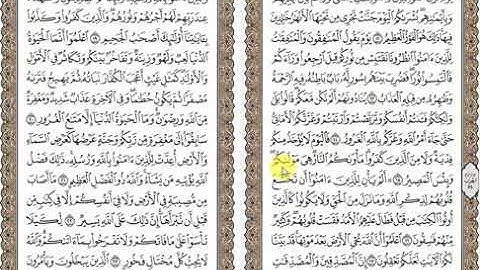 وَبِأَيْمَٰنِهِم بُشْرَىٰكُمُ ٱلْيَوْمَ جَنَّٰتٌ تَجْرِى مِن تَحْتِهَا ٱلْأَنْهَٰرُ خَٰلِدِينَ
فِيهَا ذَٰلِكَ هُوَ ٱلْفَوْزُ ٱلْعَظِيمُ ١٢ يَوْمَ يَقُولُ ٱلْمُنَٰفِقُونَ وَٱلْمُنَٰفِقَٰتُ
لِلَّذِينَ ءَامَنُوا۟ ٱنظُرُونَا نَقْتَبِسْ مِن نُّورِكُمْ قِيلَ ٱرْجِعُوا۟ وَرَآءَكُمْ
فَٱلْتَمِسُوا۟ نُورًا فَضُرِبَ بَيْنَهُم بِسُورٍ لَّهُۥ بَابٌۢ بَاطِنُهُۥ فِيهِ ٱلرَّحْمَةُ
وَظَٰهِرُهُۥ مِن قِبَلِهِ ٱلْعَذَابُ ١٣ يُنَادُونَهُمْ أَلَمْ نَكُن مَّعَكُمْ قَالُوا۟ بَلَىٰ
وَلَٰكِنَّكُمْ فَتَنتُمْ أَنفُسَكُمْ وَتَرَبَّصْتُمْ وَٱرْتَبْتُمْ وَغَرَّتْكُمُ ٱلْأَمَانِىُّ
حَتَّىٰ جَآءَ أَمْرُ ٱللَّهِ وَغَرَّكُم بِٱللَّهِ ٱلْغَرُورُ ١٤ فَٱلْيَوْمَ لَا يُؤْخَذُ مِنكُمْ
فِدْيَةٌ وَلَا مِنَ ٱلَّذِينَ كَفَرُوا۟ مَأْوَىٰكُمُ ٱلنَّارُ هِىَ مَوْلَىٰكُمْ
وَبِئْسَ ٱلْمَصِيرُ ١٥ أَلَمْ يَأْنِ لِلَّذِينَ ءَامَنُوٓا۟ أَن تَخْشَعَ
قُلُوبُهُمْ لِذِكْرِ ٱللَّهِ وَمَا نَزَلَ مِنَ ٱلْحَقِّ وَلَا يَكُونُوا۟ كَٱلَّذِينَ
أُوتُوا۟ ٱلْكِتَٰبَ مِن قَبْلُ فَطَالَ عَلَيْهِمُ ٱلْأَمَدُ فَقَسَتْ قُلُوبُهُمْ وَكَثِيرٌ
مِّنْهُمْ فَٰسِقُونَ ١٦ ٱعْلَمُوٓا۟ أَنَّ ٱللَّهَ يُحْىِ ٱلْأَرْضَ بَعْدَ مَوْتِهَا قَدْ بَيَّنَّا
لَكُمُ ٱلْءَايَٰتِ لَعَلَّكُمْ تَعْقِلُونَ ١٧ إِنَّ ٱلْمُصَّدِّقِينَ وَٱلْمُصَّدِّقَٰتِ
عِندَ رَبِّهِمْ لَهُمْ أَجْرُهُمْ وَنُورُهُمْ وَٱلَّذِينَ كَفَرُوا۟ وَكَذَّبُوا۟
بِـَٔايَٰتِنَآ أُو۟لَٰٓئِكَ أَصْحَٰبُ ٱلْجَحِيمِ ١٩ ٱعْلَمُوٓا۟ أَنَّمَا ٱلْحَيَوٰةُ
ٱلدُّنْيَا لَعِبٌ وَلَهْوٌ وَزِينَةٌ وَتَفَاخُرٌۢ بَيْنَكُمْ وَتَكَاثُرٌ فِى ٱلْأَمْوَٰلِ
وَٱلْأَوْلَٰدِ كَمَثَلِ غَيْثٍ أَعْجَبَ ٱلْكُفَّارَ نَبَاتُهُۥ ثُمَّ يَهِيجُ فَتَرَىٰهُ
مُصْفَرًّا ثُمَّ يَكُونُ حُطَٰمًا وَفِى ٱلْءَاخِرَةِ عَذَابٌ شَدِيدٌ وَمَغْفِرَةٌ
مِّنَ ٱللَّهِ وَرِضْوَٰنٌ وَمَا ٱلْحَيَوٰةُ ٱلدُّنْيَآ إِلَّا مَتَٰعُ ٱلْغُرُورِ ٢٠
سَابِقُوٓا۟ إِلَىٰ مَغْفِرَةٍ مِّن رَّبِّكُمْ وَجَنَّةٍ عَرْضُهَا كَعَرْضِ ٱلسَّمَآءِ
وَٱلْأَرْضِ أُعِدَّتْ لِلَّذِينَ ءَامَنُوا۟ بِٱللَّهِ وَرُسُلِهِۦ ذَٰلِكَ فَضْلُ
ٱللَّهِ يُؤْتِيهِ مَن يَشَآءُ وَٱللَّهُ ذُو ٱلْفَضْلِ ٱلْعَظِيمِ ٢١ مَآ أَصَابَ
مِن مُّصِيبَةٍ فِى ٱلْأَرْضِ وَلَا فِىٓ أَنفُسِكُمْ إِلَّا فِى كِتَٰبٍ مِّن
قَبْلِ أَن نَّبْرَأَهَآ إِنَّ ذَٰلِكَ عَلَى ٱللَّهِ يَسِيرٌ ٢٢ لِّكَيْلَا
تَأْسَوْا۟ عَلَىٰ مَا فَاتَكُمْ وَلَا تَفْرَحُوا۟ بِمَآ ءَاتَىٰكُمْ وَٱللَّهُ
لَا يُحِبُّ كُلَّ مُخْتَالٍ فَخُورٍ ٢٣ ٱلَّذِينَ يَبْخَلُونَ وَيَأْمُرُونَ